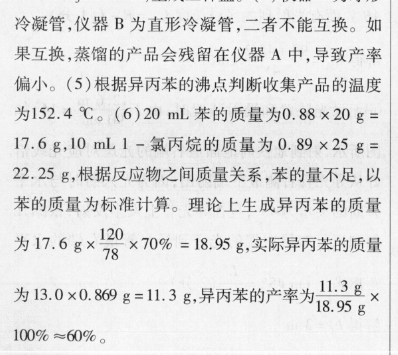 冷凝管,仪器 B 为直形冷凝管,二者不能互换。如
果互换,蒸馏的产品会残留在仪器 A 中,导致产率
偏小。(5)根据异丙苯的沸点判断收集产品的温度
为152.4 ℃。(6)20 mL 苯的质量为0.88×20 g =
17.6 g,10 mL 1 - 氯丙烷的质量为 0. 89 × 25 g =
22.25 g,根据反应物之间质量关系,苯的量不足,以
苯的质量为标准计算。理论上生成异丙苯的质量
为 17.6 g×120/78×70% =18.95 g,实际异丙苯的质量
为 13.0×0.869 g=11.3 g,异丙苯的产率为11.3 g/18.95 g×
100% ≈60%。